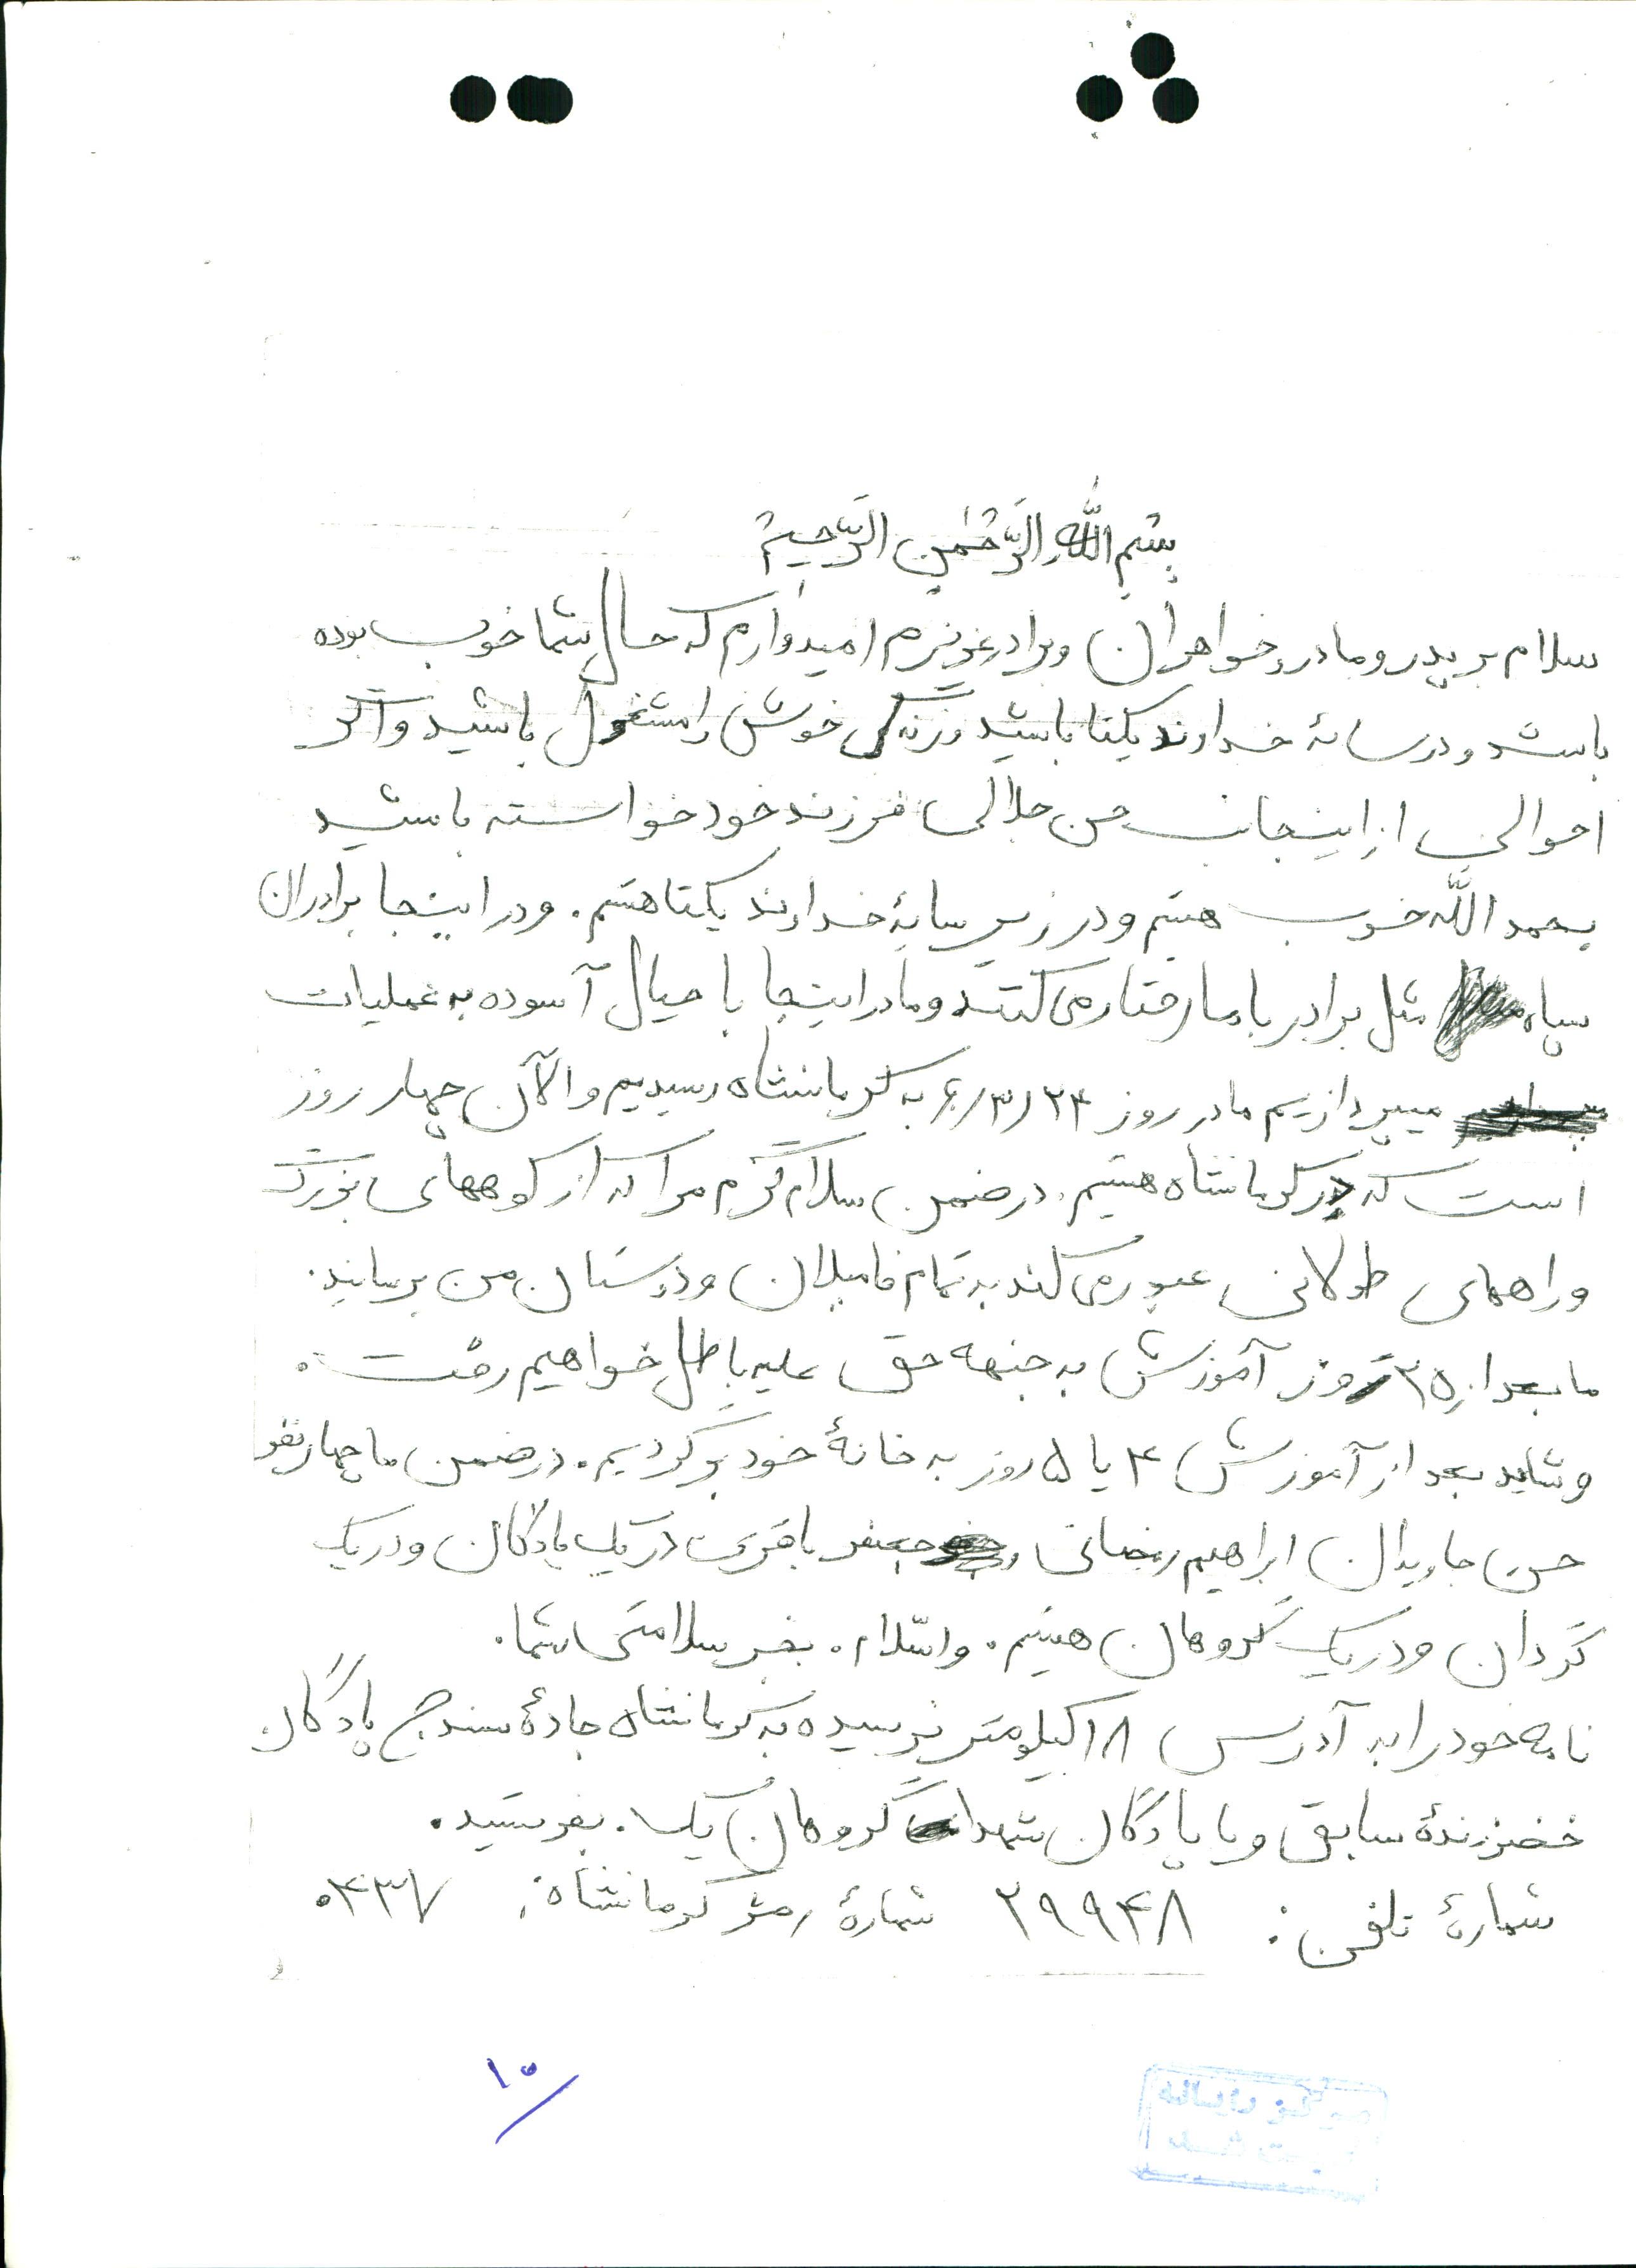 بِسْمِ اللهِ الرَّحْمٰنِ الرَّحیمْ
سلام بر پدر و مادر و خواهران و برادر عزیزم امیدوارم که حال شما خوب بوده
باشد و در سایهٔ خداوند یکتا باشید و زندگی خوش را مشغول باشید و اگر
احوالی از اینجانب حسن جلالی فرزند خود خواسته باشید
بحمد اللّه خوب هستم و در زیر سایهٔ خداوند یکتا هستم. و در اینجا برادران
سپاه مثل برادر با ما رفتار می کنند و ما در اینجا با خیال آسوده به عملیات
میپردازیم ما در روز ۶/۳/۲۴ به کرمانشاه رسیدیم و الآن چهار روز
است که در کرمانشاه هستیم. در ضمن سلام گرم مرا که از کوههای بزرگ
و راههای طولانی عبور می کند به تمام فامیلان و دوستان من برسانید.
ما بعد از ۳۵ روز آموزش به جبهه حق علیه باطل خواهیم رفت.
و شاید بعد از آموزش ۴ یا ۵ روز به خانهٔ خود برگردیم. در ضمن ما چهار نفر
حسن جاویدان ابراهیم رمضانی جعفر باقری در یک پادگان و در یک
گردان و در یک گروهان هستیم. والسّلام. بغیر سلامتی شما.
نامه خود را به آدرس ۱۸ کیلومتر نرسیده به کرمانشاه جادهٔ سنندج پادگان
خضرزندهٔ سابق و یا پادگان شهدا گروهان یک. بفرستید.
شمارهٔ تلفن: ۲۹۹۴۸ شمارهٔ رمز کرمانشاه: ۰۴۳۷
۱۰